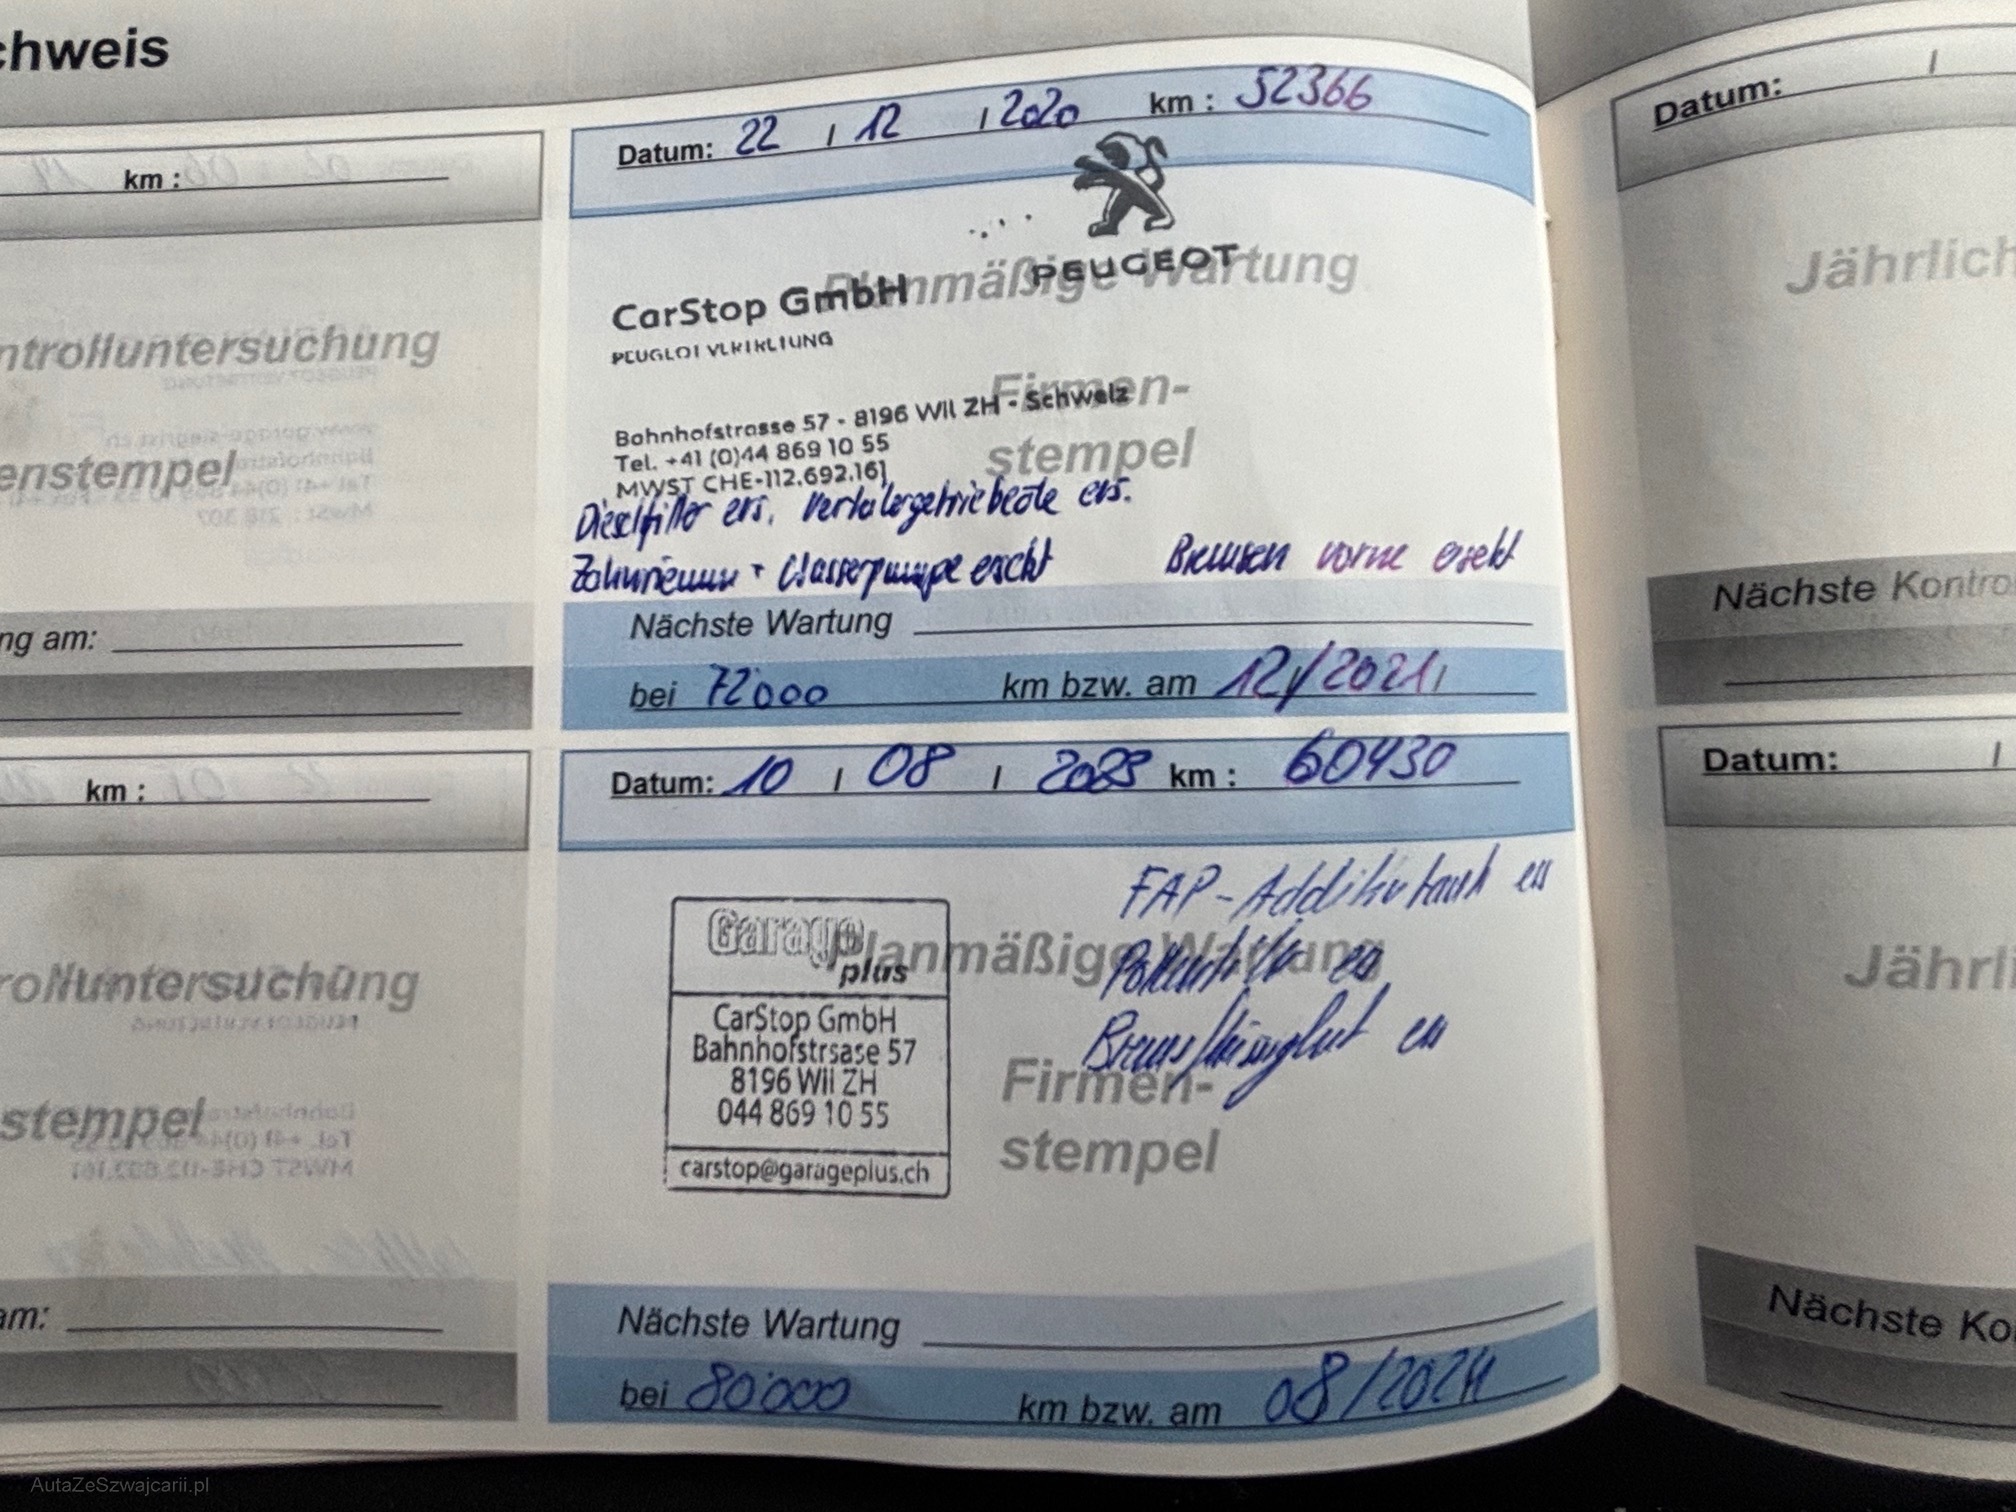 chweis
km :
ntrolluntersuchung
enstempel
ng am:
km :
rolluntersuchung
stempel
am:
Datum: 22 / 12 / 2020 km : 52366
PEUGEOT
Planmäßige Wartung
CarStop GmbH
PEUGEOT VERTRETUNG
Firmen-
stempel
Bahnhofstrasse 57 - 8196 Wil ZH - Schweiz
Tel. +41 (0)44 869 10 55
MWST CHE-112.692.161
Dieselfilter ers. Verteilergetriebeöle ers.
Zahnriemen + Wasserpumpe ersetzt Bremsen vorne ersetzt
Nächste Wartung
bei 72'000 km bzw. am 12/2021
Datum: 10 / 08 / 2023 km : 60430
FAP-Additivtank ers
Planmäßige Wartung
Pollenfilter ers
Bremsflüssigkeit ers
Garage
plus
CarStop GmbH
Bahnhofstrsase 57
8196 Wil ZH
044 869 10 55
carstop@garageplus.ch
Firmen-
stempel
Nächste Wartung
bei 80'000 km bzw. am 08/2024
Datum: /
Jährlich
Nächste Kontro
Datum: /
Jährli
Nächste Ko
AutaZeSzwajcarii.pl